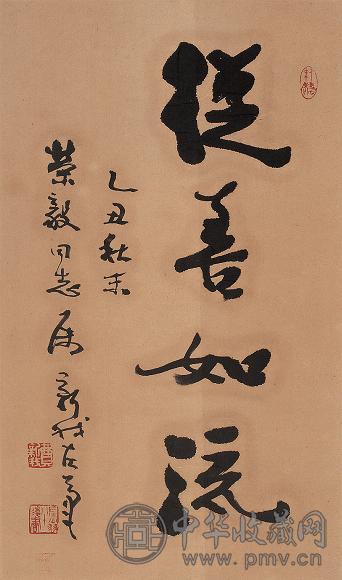 從善如流
乙丑秋末
榮毅同志属 新我左筆
中华收藏网
www.pmv.cn